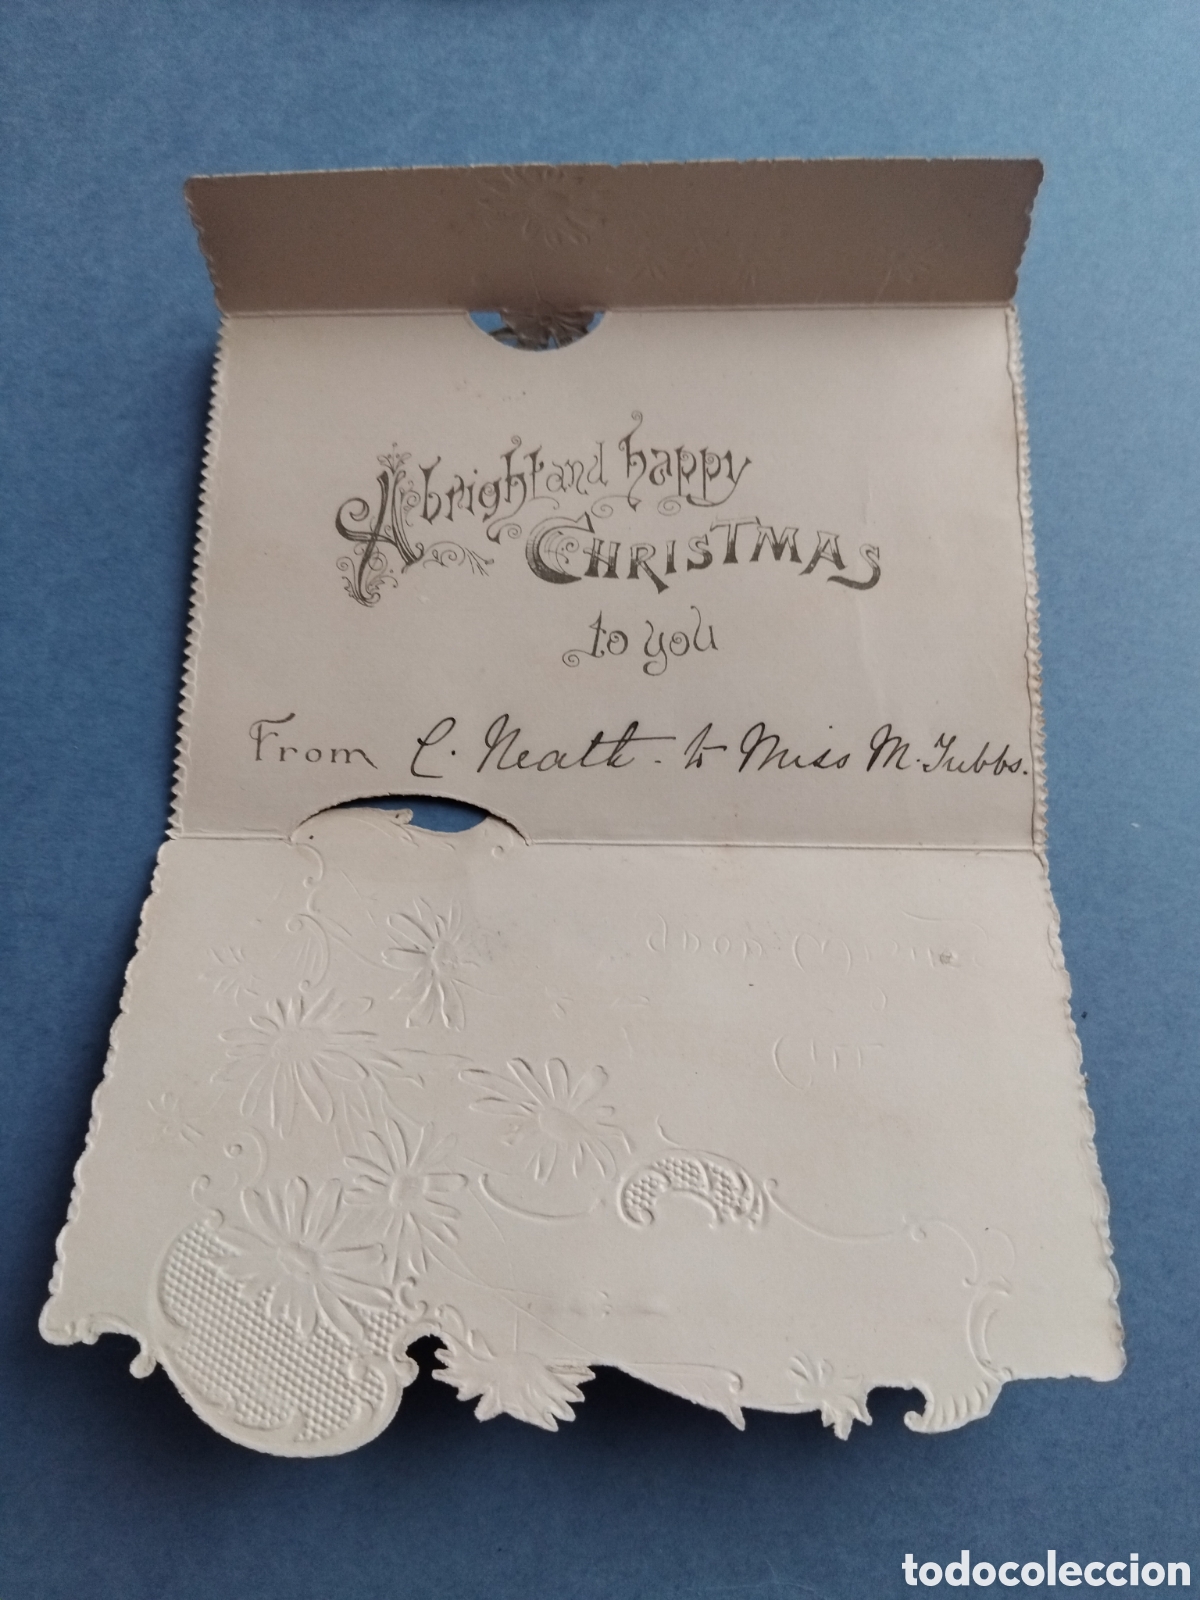 A bright and happy
CHRISTMAS
to you
From C. Neath - to Miss M. Tubbs.
todocoleccion